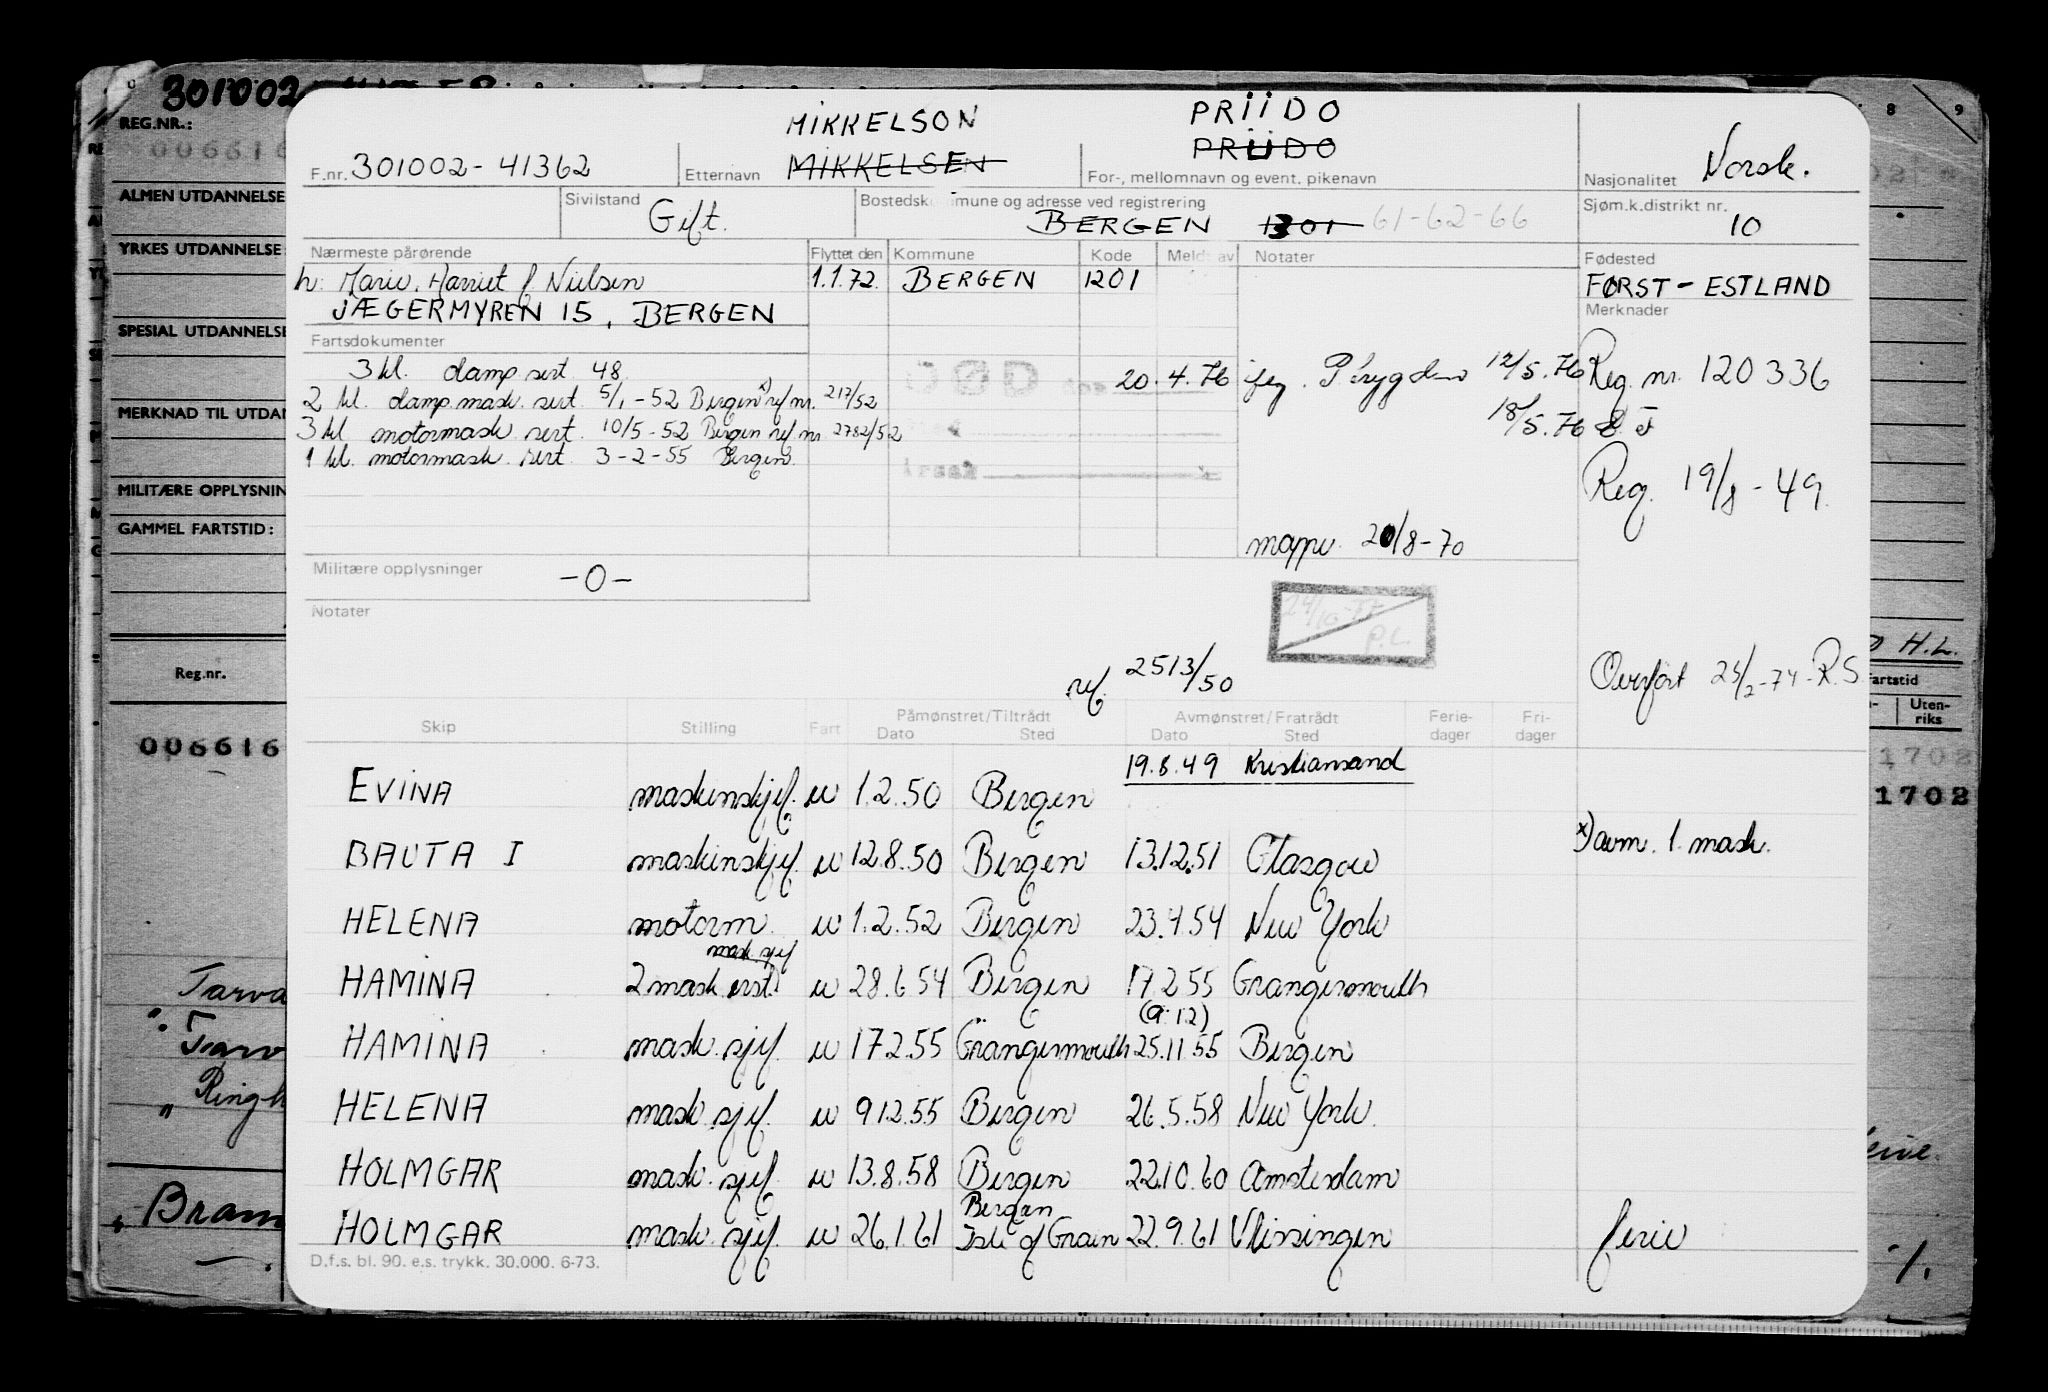 301002
REG.NR.:
006616
ALMEN UTDANNELSE
YRKES UTDANNELSE
SPESIAL UTDANNELSE
MERKNAD TIL UTDAN
MILITÆRE OPPLYSNIN
GAMMEL FARTSTID:
Reg.nr.
006616
Tarva
Ringh
Bram
8 9
H.L.
Fartstid
Uten-
riks
1702
1702
MIKKELSON PRIIDO
F.nr. 301002-41362 Etternavn MIKKELSEN PRIIDO
For-, mellomnavn og event. pikenavn
Nasjonalitet Norsk.
Sivilstand Gift.
Bostedskommune og adresse ved registrering
BERGEN 1301 61-62-66
Sjøm.k.distrikt nr. 10
Nærmeste pårørende
h: Marie, Harriet f Nielsen
JÆGERMYREN 15, BERGEN
Flyttet den Kommune Kode Meldt av Notater
1.1.72. BERGEN 1201
Fødested
FØRST - ESTLAND
Merknader
Fartsdokumenter
3 kl. damp sert 48
2 kl. damp.mask. sert. 5/1-52 Bergen x) ref nr. 217/52
3 kl motormask sert. 10/5-52 Bergen ref nr 2782/52
1 kl. motormask. sert. 3-2-55 Bergen.
DØD 20.4.76 12/5.76
18/5.76
Årsak
Reg. nr. 120336
Reg. 19/8-49.
mappe 20/8-70
Militære opplysninger -0-
Notater
P.L.
ref. 2513/50
Overført 25/2-74-R.S
Skip Stilling Fart Påmønstret/Tiltrådt Avmønstret/Fratrådt Ferie- Fri-
Dato Sted Dato Sted dager dager
19.8.49 Kristiansand
EVINA maskinsjef. u 1.2.50 Bergen
BAUTA I maskinsjef. u 12.8.50 Bergen 13.12.51 Glasgow x) avm. 1. mask.
HELENA motorm. u 1.2.52 Bergen 23.4.54 New York
mask. sjef
HAMINA 2 mask erst. u 28.6.54 Bergen 17.2.55 Grangermouth
(9.12)
HAMINA mask. sjef. u 17.2.55 Grangermouth 25.11.55 Bergen
HELENA mask. sjef. u 9.12.55 Bergen 26.5.58 New York.
HOLMGAR mask. sjef. u 13.8.58 Bergen 22.10.60 Amsterdam
Bergen
HOLMGAR mask. sjef. u 26.1.61 Isle of Grain 22.9.61 Vlissingen ferie
D.f.s. bl. 90. e.s. trykk. 30.000. 6-73.